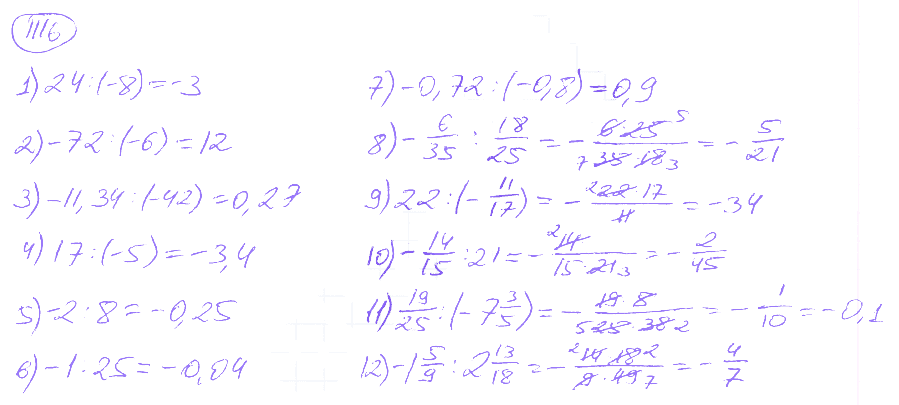 1116
1) 24 : (-8) = -3
2) -72 : (-6) = 12
3) -11,34 : (-42) = 0,27
4) 17 : (-5) = -3,4
5) -2 · 8 = -0,25
6) -1 · 25 = -0,04
7) -0,72 : (-0,8) = 0,9
8) - 6/35 : 18/25 = - (6 · 25 5)/(7 35 · 18 3) = - 5/21
9) 22 : (- 11/17) = - (2 22 · 17)/11 = -34
10) - 14/15 : 21 = - (2 14)/(15 · 21 3) = - 2/45
11) 19/25 : (-7 3/5) = - (19 · 8)/(5 25 · 38 2) = - 1/10 = -0,1
12) -1 5/9 : 2 13/18 = - (2 14 · 18 2)/(9 · 49 7) = - 4/7